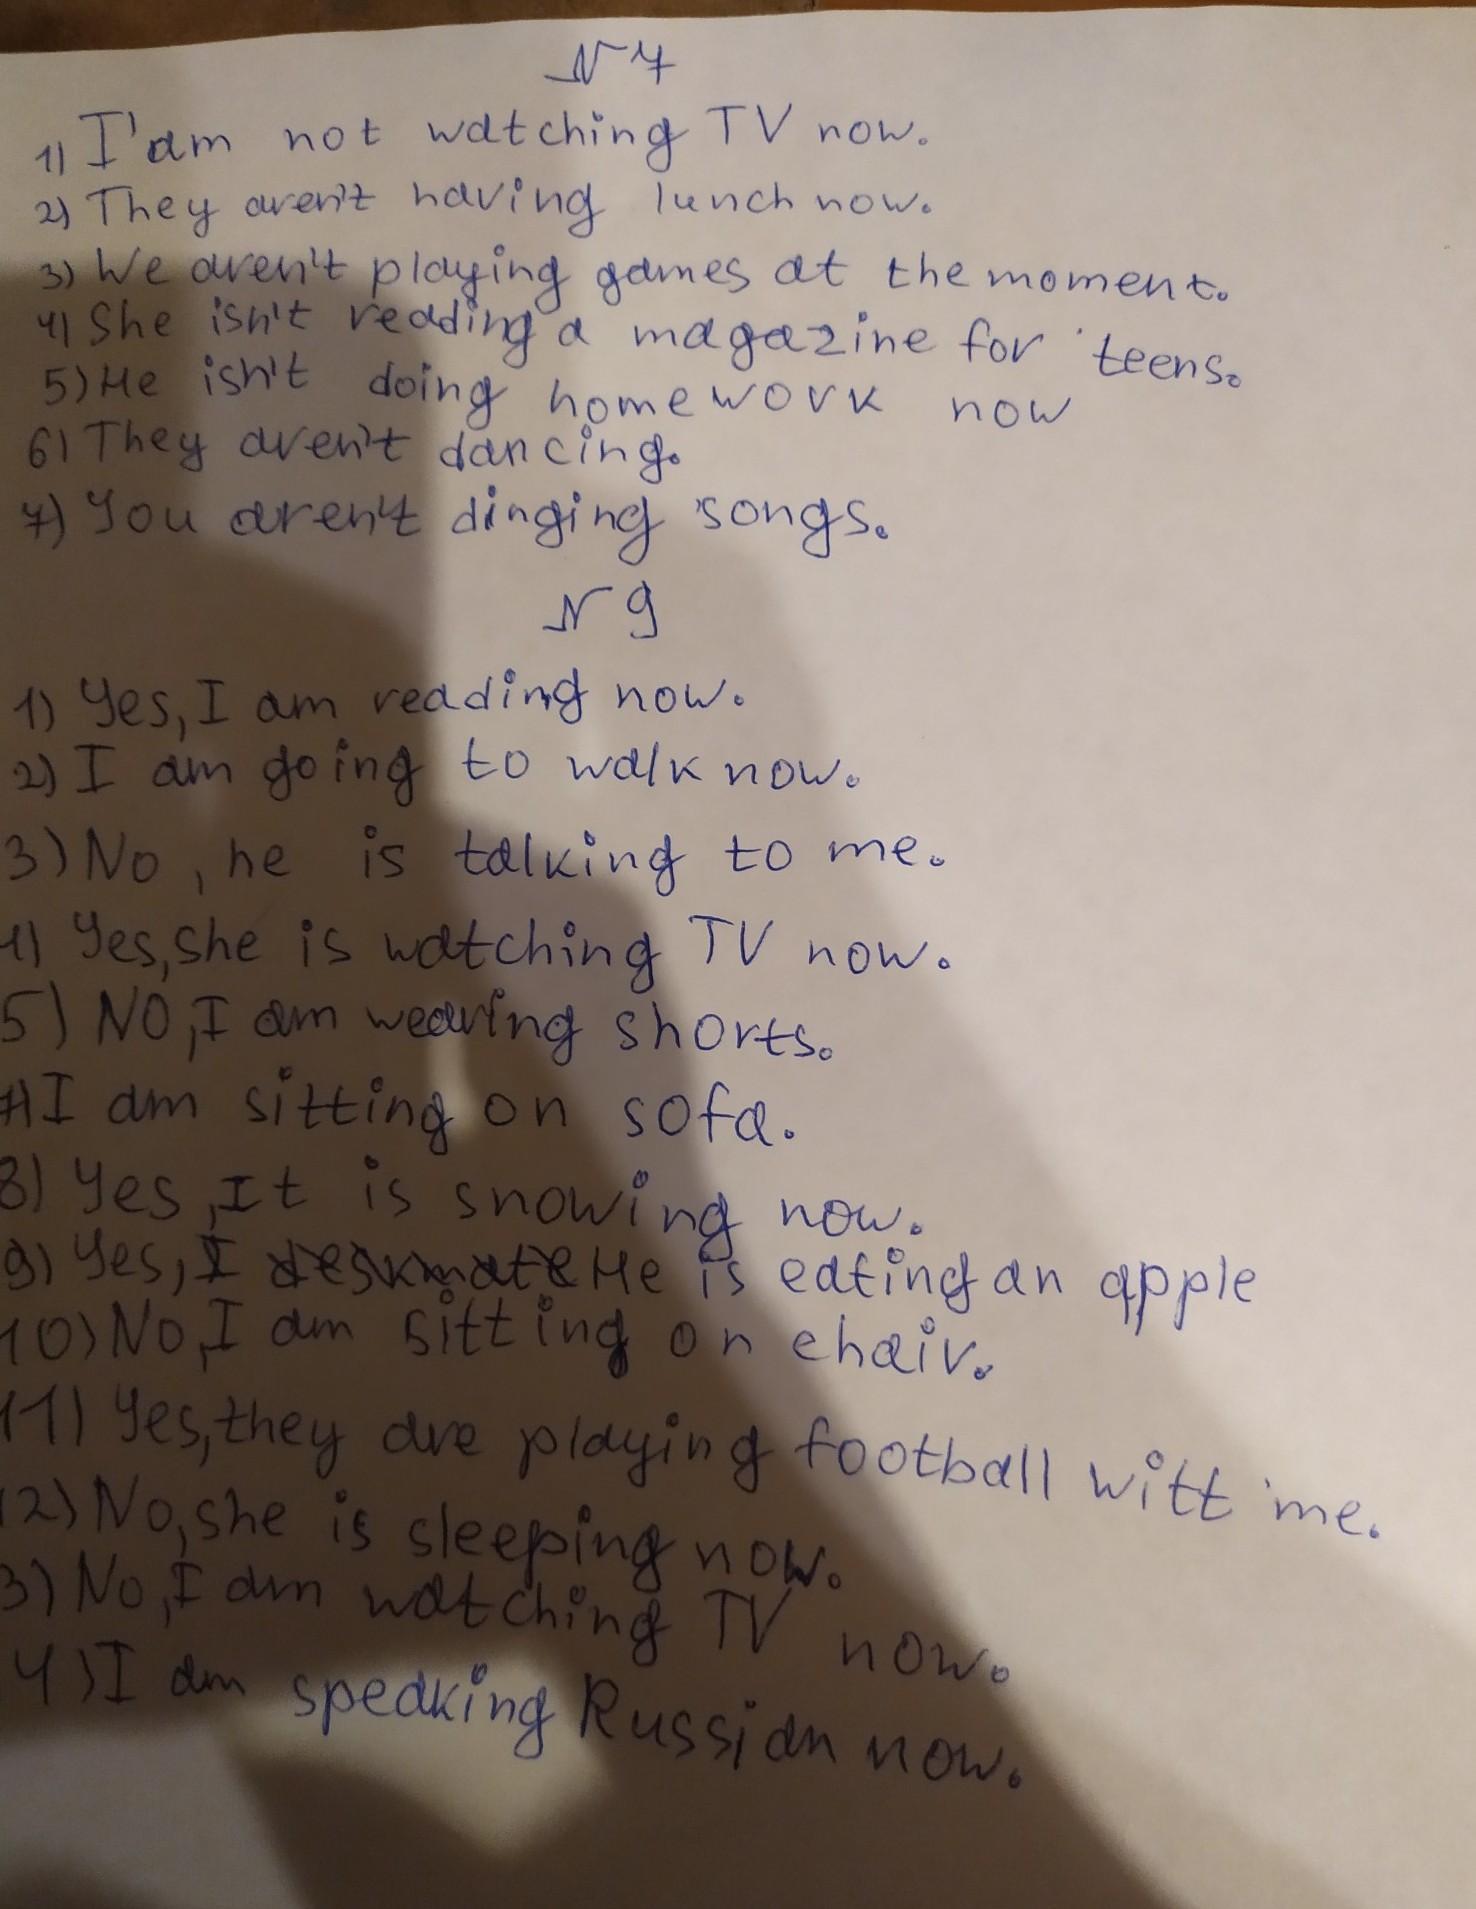 N 7
1) I'am not watching TV now.
2) They aren't having lunch now.
3) We aren't playing games at the moment.
4) She isn't reading a magazine for teens.
5) He isn't doing homework now
6) They aren't dancing.
7) You aren't dinging songs.
N 9
1) Yes, I am reading now.
2) I am going to walk now.
3) No, he is talking to me.
4) Yes, she is watching TV now.
5) NO, I am wearing shorts.
7) I am sitting on sofa.
8) Yes, It is snowing now.
9) Yes, I deskmate He is eating an apple
10) No, I am sitting on chair.
11) Yes, they are playing football witt me.
12) No, she is sleeping now.
3) No, I am watching TV now.
4) I am speaking Russian now.